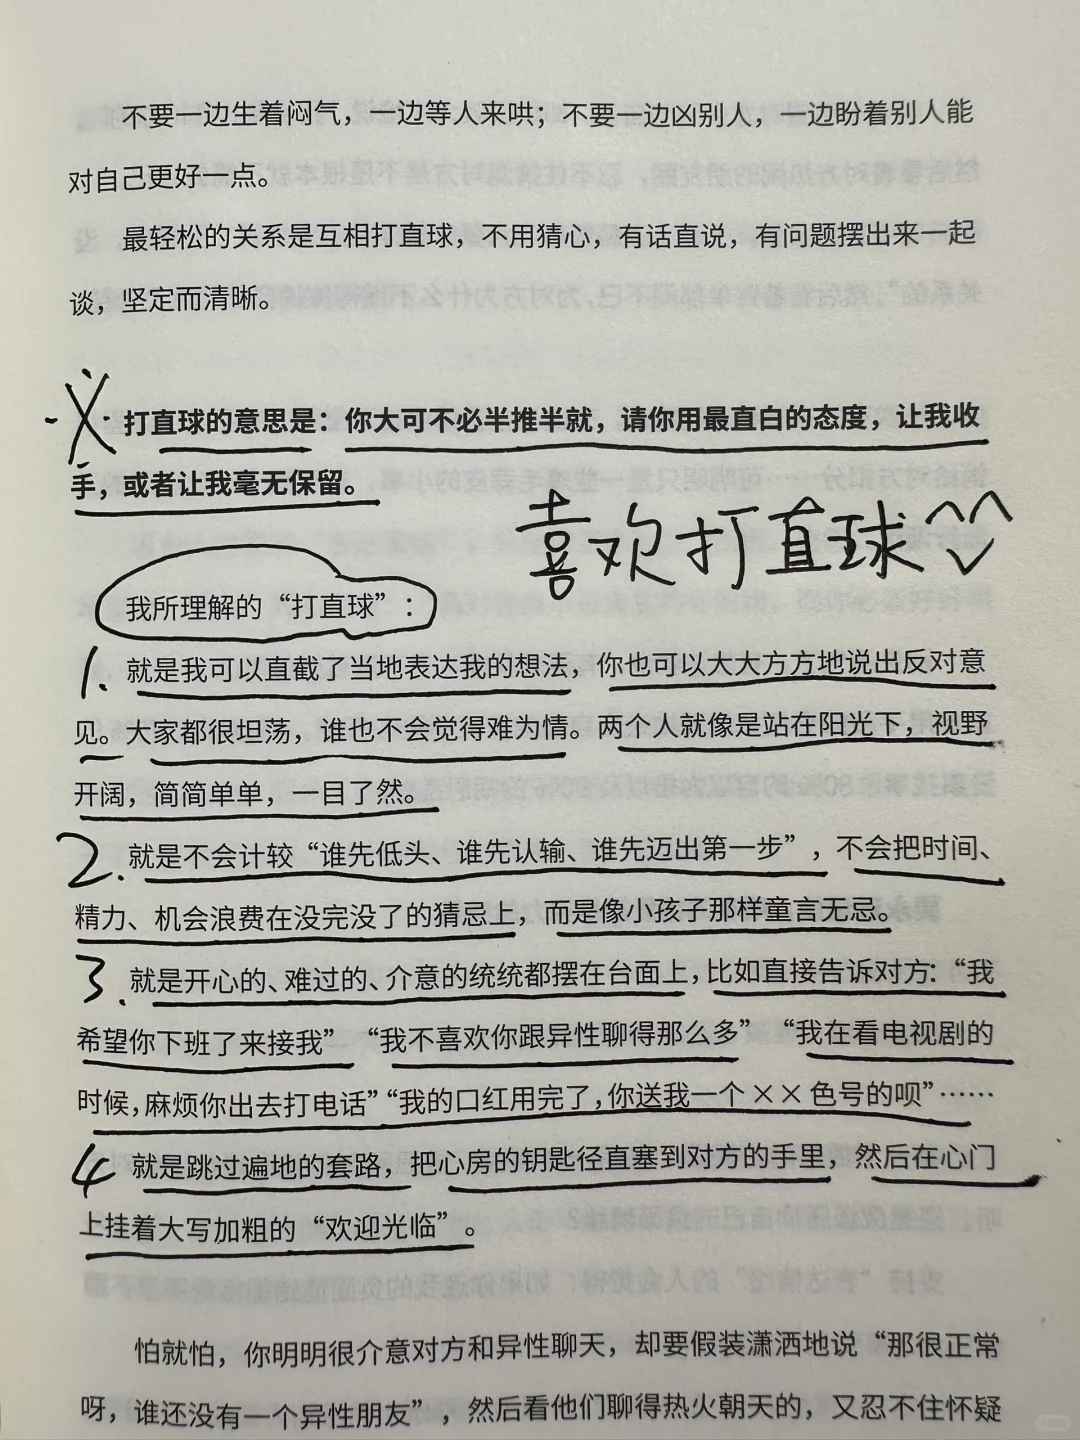 不要一边生着闷气，一边等人来哄；不要一边凶别人，一边盼着别人能
对自己更好一点。
最轻松的关系是互相打直球，不用猜心，有话直说，有问题摆出来一起
谈，坚定而清晰。
打直球的意思是：你大可不必半推半就，请你用最直白的态度，让我收
手，或者让我毫无保留。
喜欢打直球
我所理解的“打直球”：
1. 就是我可以直截了当地表达我的想法，你也可以大大方方地说出反对意
见。大家都很坦荡，谁也不会觉得难为情。两个人就像是站在阳光下，视野
开阔，简简单单，一目了然。
2. 就是不会计较“谁先低头、谁先认输、谁先迈出第一步”，不会把时间、
精力、机会浪费在没完没了的猜忌上，而是像小孩子那样童言无忌。
3. 就是开心的、难过的、介意的统统都摆在台面上，比如直接告诉对方：“我
希望你下班了来接我”“我不喜欢你跟异性聊得那么多”“我在看电视剧的
时候，麻烦你出去打电话”“我的口红用完了，你送我一个××色号的呗”……
4 就是跳过遍地的套路，把心房的钥匙径直塞到对方的手里，然后在心门
上挂着大写加粗的“欢迎光临”。
怕就怕，你明明很介意对方和异性聊天，却要假装潇洒地说“那很正常
呀，谁还没有一个异性朋友”，然后看他们聊得热火朝天的，又忍不住怀疑